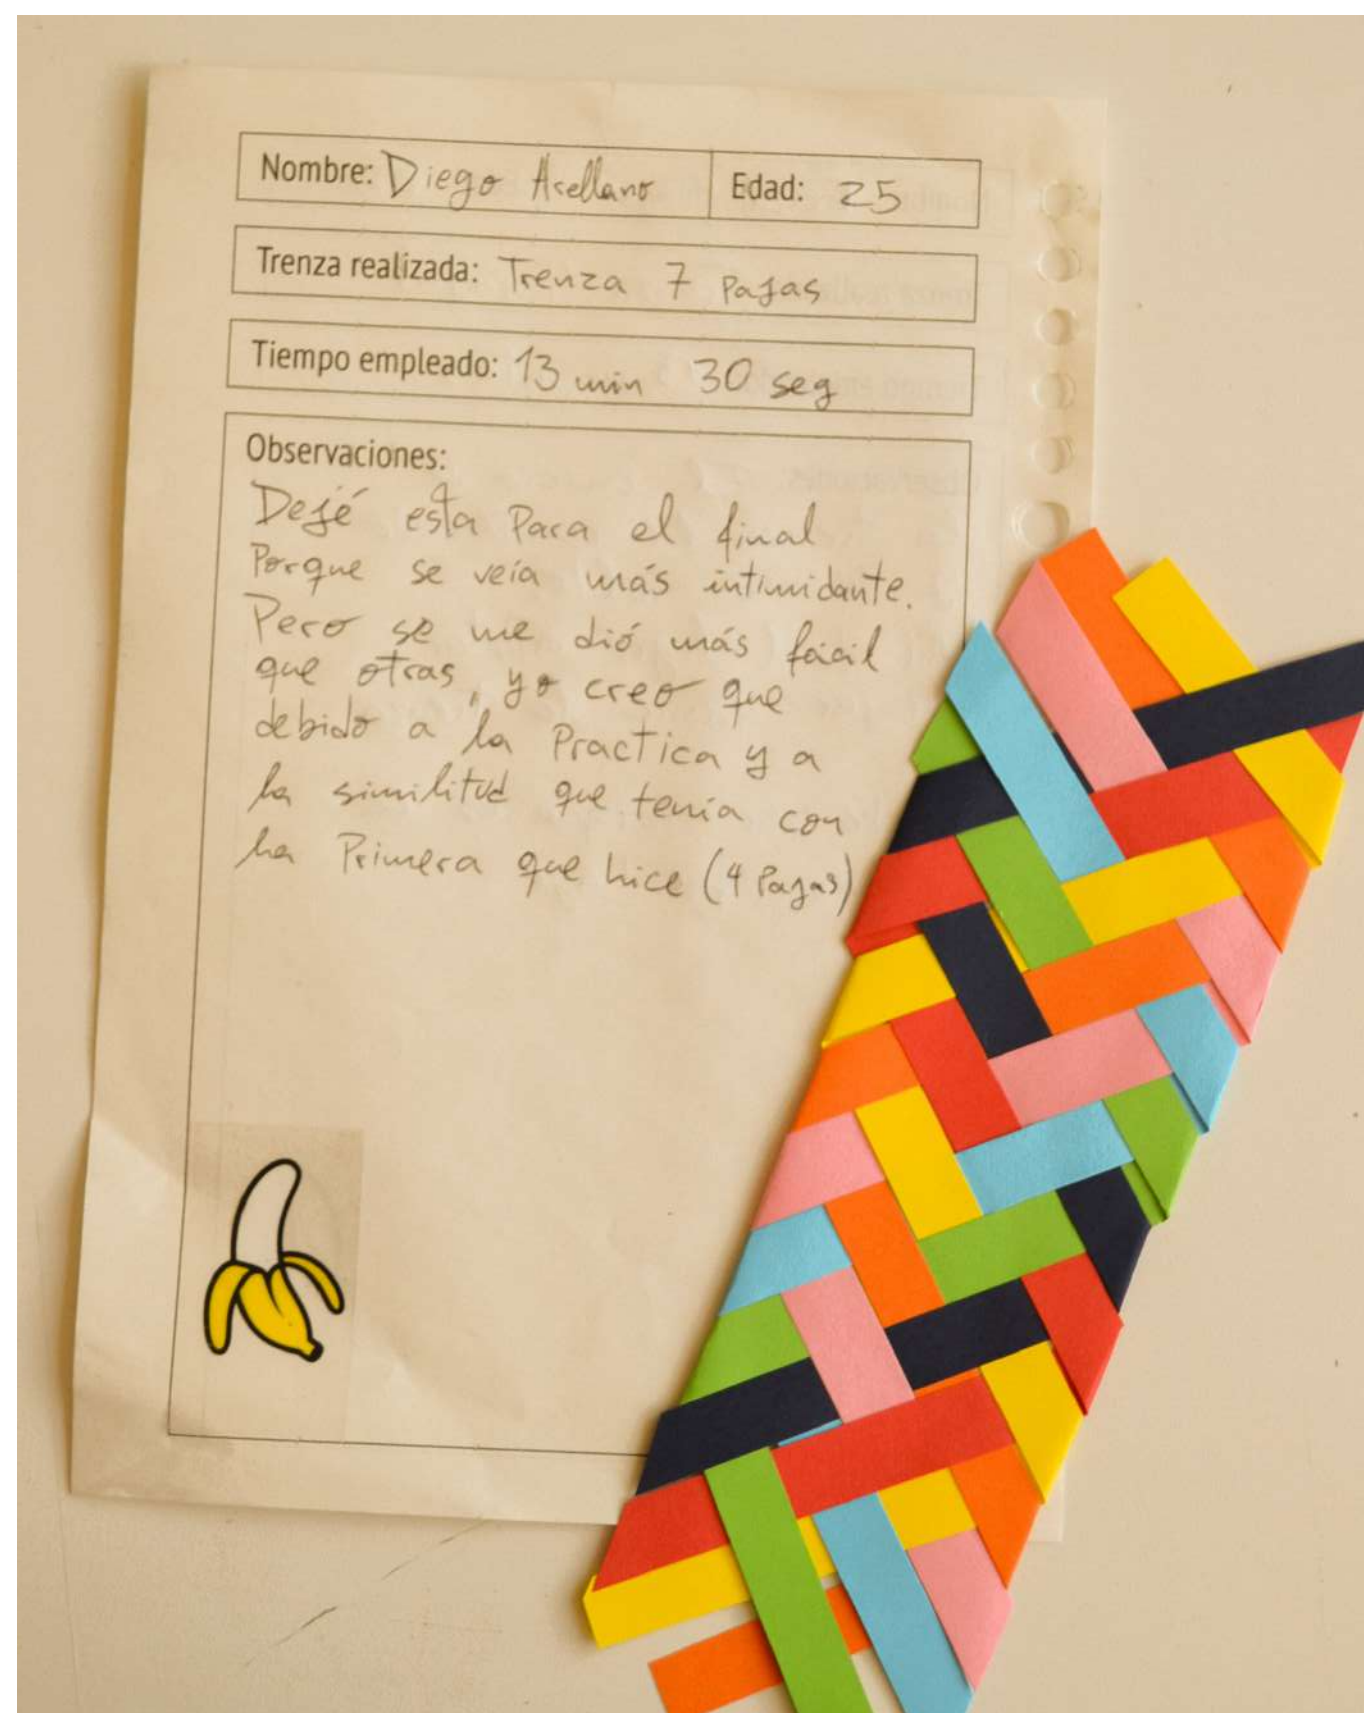 Nombre: Diego Arellano Edad: 25
Trenza realizada: Trenza 7 Pajas
Tiempo empleado: 13 min 30 seg
Observaciones:
Dejé esta Para el final
Porque se veía más intimidante.
Pero se me dió más fácil
que otras, yo creo que
debido a la Practica y a
la similitud que tenía con
la Primera que hice (4 Pajas)